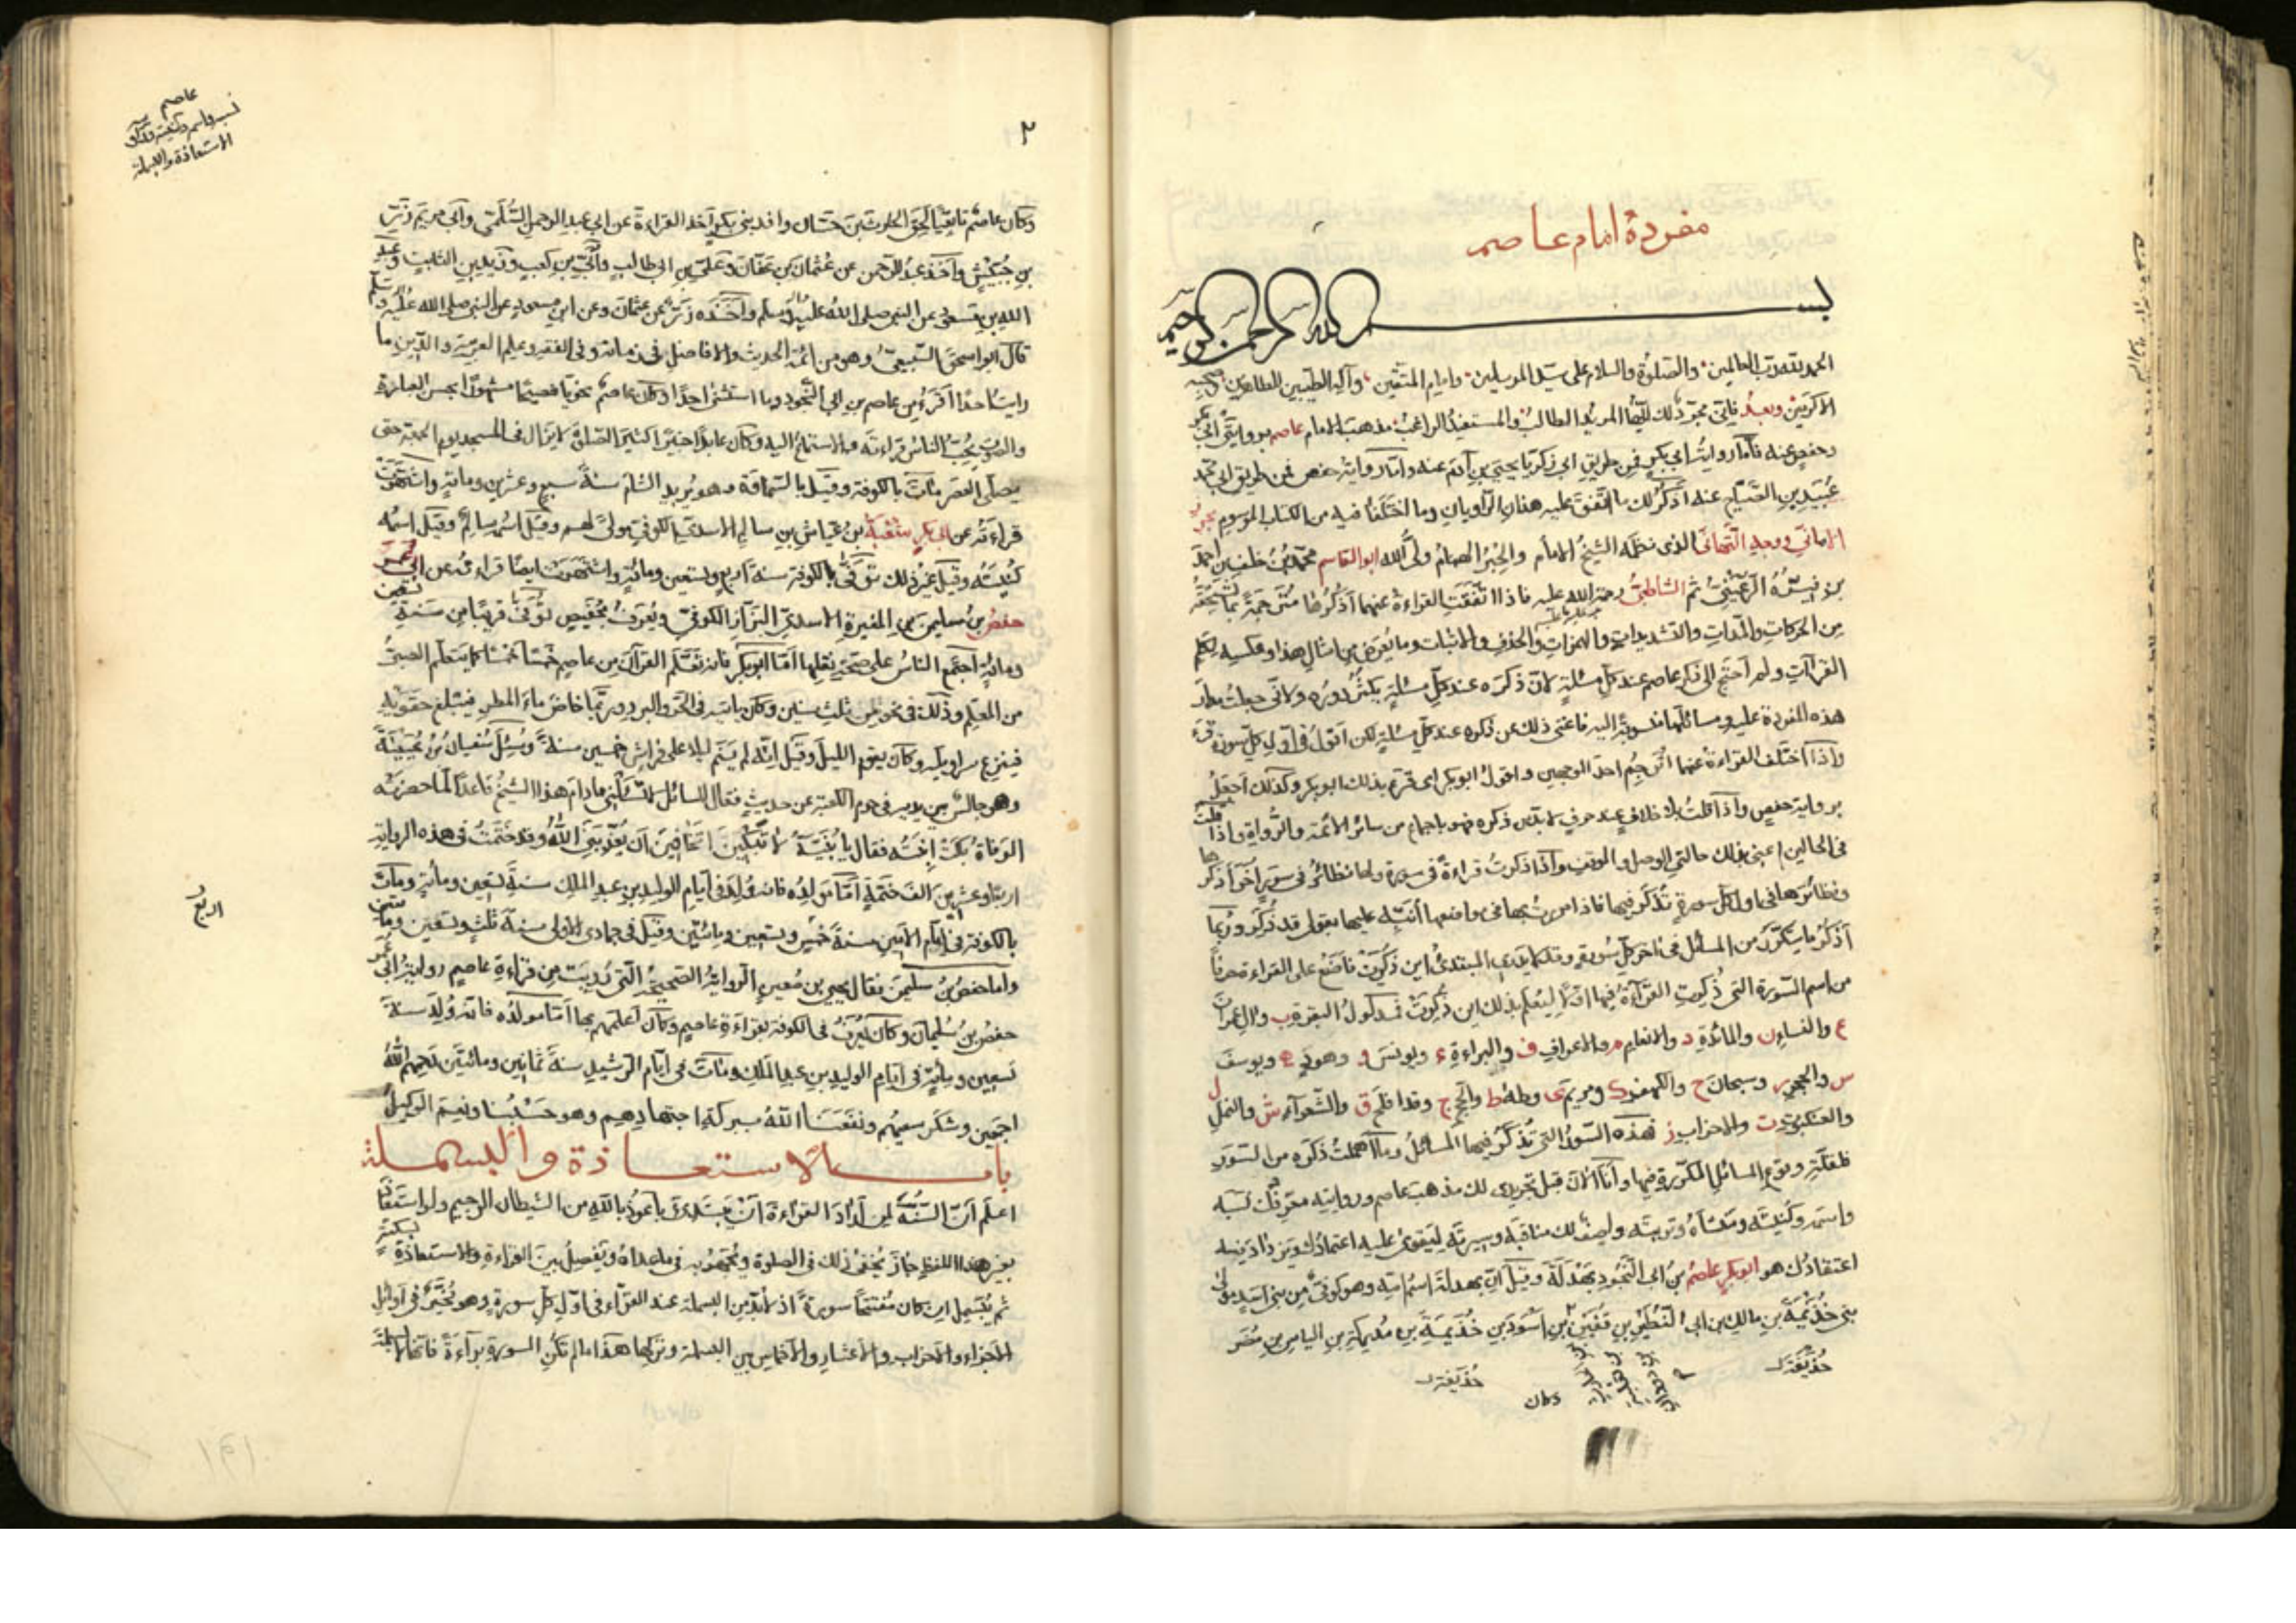 مفردة امام عاصم
بسم الله الرحمن الرحيم
الحمد لله رب العالمين والصلوة والسلام على سيد المرسلين وامام المتقين وآله الطيبين الطاهرين وصحبه
الاكرمين وبعد فاني محرر لك ايها المريد الطالب والمستفيد الراغب مذهب الامام عاصم بروايتي ابي بكر
وحفص عنه فاما رواية ابي بكر فمن طريق ابي زكريا يحيى بن آدم عنه واما رواية حفص فمن طريق ابي محمد
عبيد بن الصباح عنه اذكر لك ما اتفق عليه هذان الراويان وما اختلفا فيه من الكتاب الموسوم بحرز
الاماني ووجه التهاني الذي نظمه الشيخ الامام والحبر الهمام ولي الله ابو القاسم محمد بن خلف بن احمد
بن فيره الرعيني ثم الشاطبي رحمة الله عليه فاذا اتفقت القراءة عنهما اذكرها مترجمة بما تستحقه
من الحركات والمدات والتشديدات والهمزات والحذف والاثبات وما يعرض من امثال هذا وعكسه لكم
القراآت ولم احتج الى ذكر عاصم عند كل مسئلة لان ذكره عند كل مسئلة يكثر دوره ولاني جعلت مدار
هذه المفردة عليه ومسائلها منسوبة اليه فاغنى ذلك عن ذكره عند كل مسئلة لكن اقول في اول كل سورة قرء
واذا اختلف القراءة عنهما اترجم احد الوجهين واقول ابو بكر اى قرء بذلك ابو بكر وكذلك اجعل
برواية حفص واذا قلت بلا خلاف عند حرف لا بد من ذكره فهو باجماع من سائر الائمة والرواة واذا قلت
في الحالين اعني بذلك حالتي الوصل والوقف واذا ذكرت قراءة في سورة ولها نظائر في سور اخر اذكرها
ونظائرها في اول كل سورة تذكر فيها فاذا مررت بها في مواضعها انبه عليها بقولي قد ذكر وربما
اذكر ما يتكرر من المسائل في آخر كل سورة وقد لا يدري المبتدئ اين ذكرت فاضع على القراءة حرفا
من اسم السورة التي ذكرت القراءة فيها اولا ليعلم بذلك اين ذكرت فمدلول البقرة ب وال عمران
ع والنساء ن والمائدة د والانعام م والاعراف ف والبراءة ء ويونس و وهود ه ويوسف
س والحجر ر وسبحان ح والكهف ك ومريم ى وطه ط والحج ج وقد افلح ق والشعراء ش والنمل ل
والعنكبوت ت والاحزاب ز فهذه السور التي تذكر فيها المسائل وما اهملت ذكره من السور
فلقلة وقوع المسائل المكررة فيها وانا الان قبل تحريري لك مذهب عاصم وروايته معرفك نسبه
واسمه وكنيته ومنشأه وتربته واصف لك مناقبه وسيرته ليقوى عليه اعتمادك ويزداد فيه
اعتقادك هو ابو بكر عاصم بن ابي النجود بهدلة وقيل ان بهدلة اسم امه وهو كوفي من بني اسد مولى
بني خذيمة بن مالك بن ابي النضير بن قعين بن اسود بن خذيمة بن مدركة بن الياس بن مضر
حذيفة
حذيفة
وكان
٢
عاصم
نسب واسم وكنيته
الاستعاذة والبسملة
وكان عاصم تابعيا لحق الحارث بن حسان وافد بني بكر اخذ القراءة عن ابي عبد الرحمن السلمي وابي مريم زر
بن حبيش واخذ عبد الرحمن عن عثمان بن عفان وعلي بن ابي طالب وابي بن كعب وزيد بن الثابت وعبد
الله بن مسعود عن النبي صلى الله عليه وسلم واخذه زر عن عثمان وعن ابن مسعود عن النبي صلى الله عليه وسلم
قال ابو اسحق السبيعي وهو من ائمة الحديث والافاضل في زمانه وفي الفقه وعلم العربية والدين ما
رايت احدا اقرء من عاصم بن ابي النجود وما استثنى احدا وكان عاصم نحويا فصيحا مشهورا بحسن العبارة
والصوت يحب الناس قراءته والاستماع اليه وكان عابدا خيرا كثير الصلوة لا يزال في المسجد يوم الجمعة حتى
يصلي العصر مات بالكوفة وقيل بالسماوة وهو يريد الشام سنة سبع وعشرين ومائة واشتهرت
قراءته عن ابي بكر شعبة بن عياش بن سالم الاسدي الكوفي مولى لهم وقيل اسمه سالم وقيل اسمه
كنيته وقيل غير ذلك توفى بالكوفة سنة اربع وتسعين ومائة واشتهرت ايضا قراءته عن ابي عمر
حفص بن سليمن بن المغيرة الاسدي البزاز الكوفي ويعرف بحفيص توفى قريبا من سنة تسعين
ومائة اجمع الناس على صحة نقلها اما ابو بكر فانه تعلم القرآن من عاصم خمسا خمسا كما يتعلم الصبي
من المعلم وذلك في نحو من ثلث سنين وكان ياتيه في الحر والبرد وربما خاض ماء المطر فيبلغ حقويه
فينزع سراويله وكان يقوم الليل وقيل انه لم ينم ليلا على فراش خمسين سنة وسئل سفيان بن عيينة
وهو جالس بين يديه في حرم الكعبة عن حديث فقال للسائل لا تسألني مادام هذا الشيخ قاعدا لما حضرته
الوفاة بكت ابنته فقال يا بنية لا تبكين اتخافين ان يعذبني الله وقد ختمت في هذه الزاوية
اربعا وعشرين الف ختمة اما مولده فانه ولد في ايام الوليد بن عبد الملك سنة تسعين ومائة ومات
بالكوفة في ايام الامين سنة خمس وتسعين ومائتين وقيل في جمادى الاولى سنة ثلث وتسعين ومائتين
واما حفص بن سليمن فقال يحيى بن معين الرواية الصحيحة التي رويت من قراءة عاصم رواية ابي عمر
حفص بن سليمان وكان يعرف في الكوفة بقراءة عاصم وكان اعلمهم بها اما مولده فانه ولد سنة
تسعين ومائة في ايام الوليد بن عبد الملك ومات في ايام الرشيد سنة ثمانين ومائتين رحمهم الله
اجمعين وشكر سعيهم ونفعنا الله ببركة اجتهادهم وهو حسبنا ونعم الوكيل
باب الاستعاذة والبسملة
اعلم ان السنة لمن اراد القراءة ان يبتدئ باعوذ بالله من الشيطان الرجيم ولو استعاذ
بغير هذا اللفظ جاز يخفى ذلك في الصلوة ويجهر به في ما عداه ويفصل بين القراءة والاستعاذة بسكتة
ثم يبسمل ان كان مفتتحا سورة اذ لا بد من البسملة عند القراء في اول كل سورة وهو مخير في اوائل
الاجزاء والاحزاب والاعشار والاخماس بين البسملة وتركها هذا ما لم تكن السورة براءة فانها لا بسملة